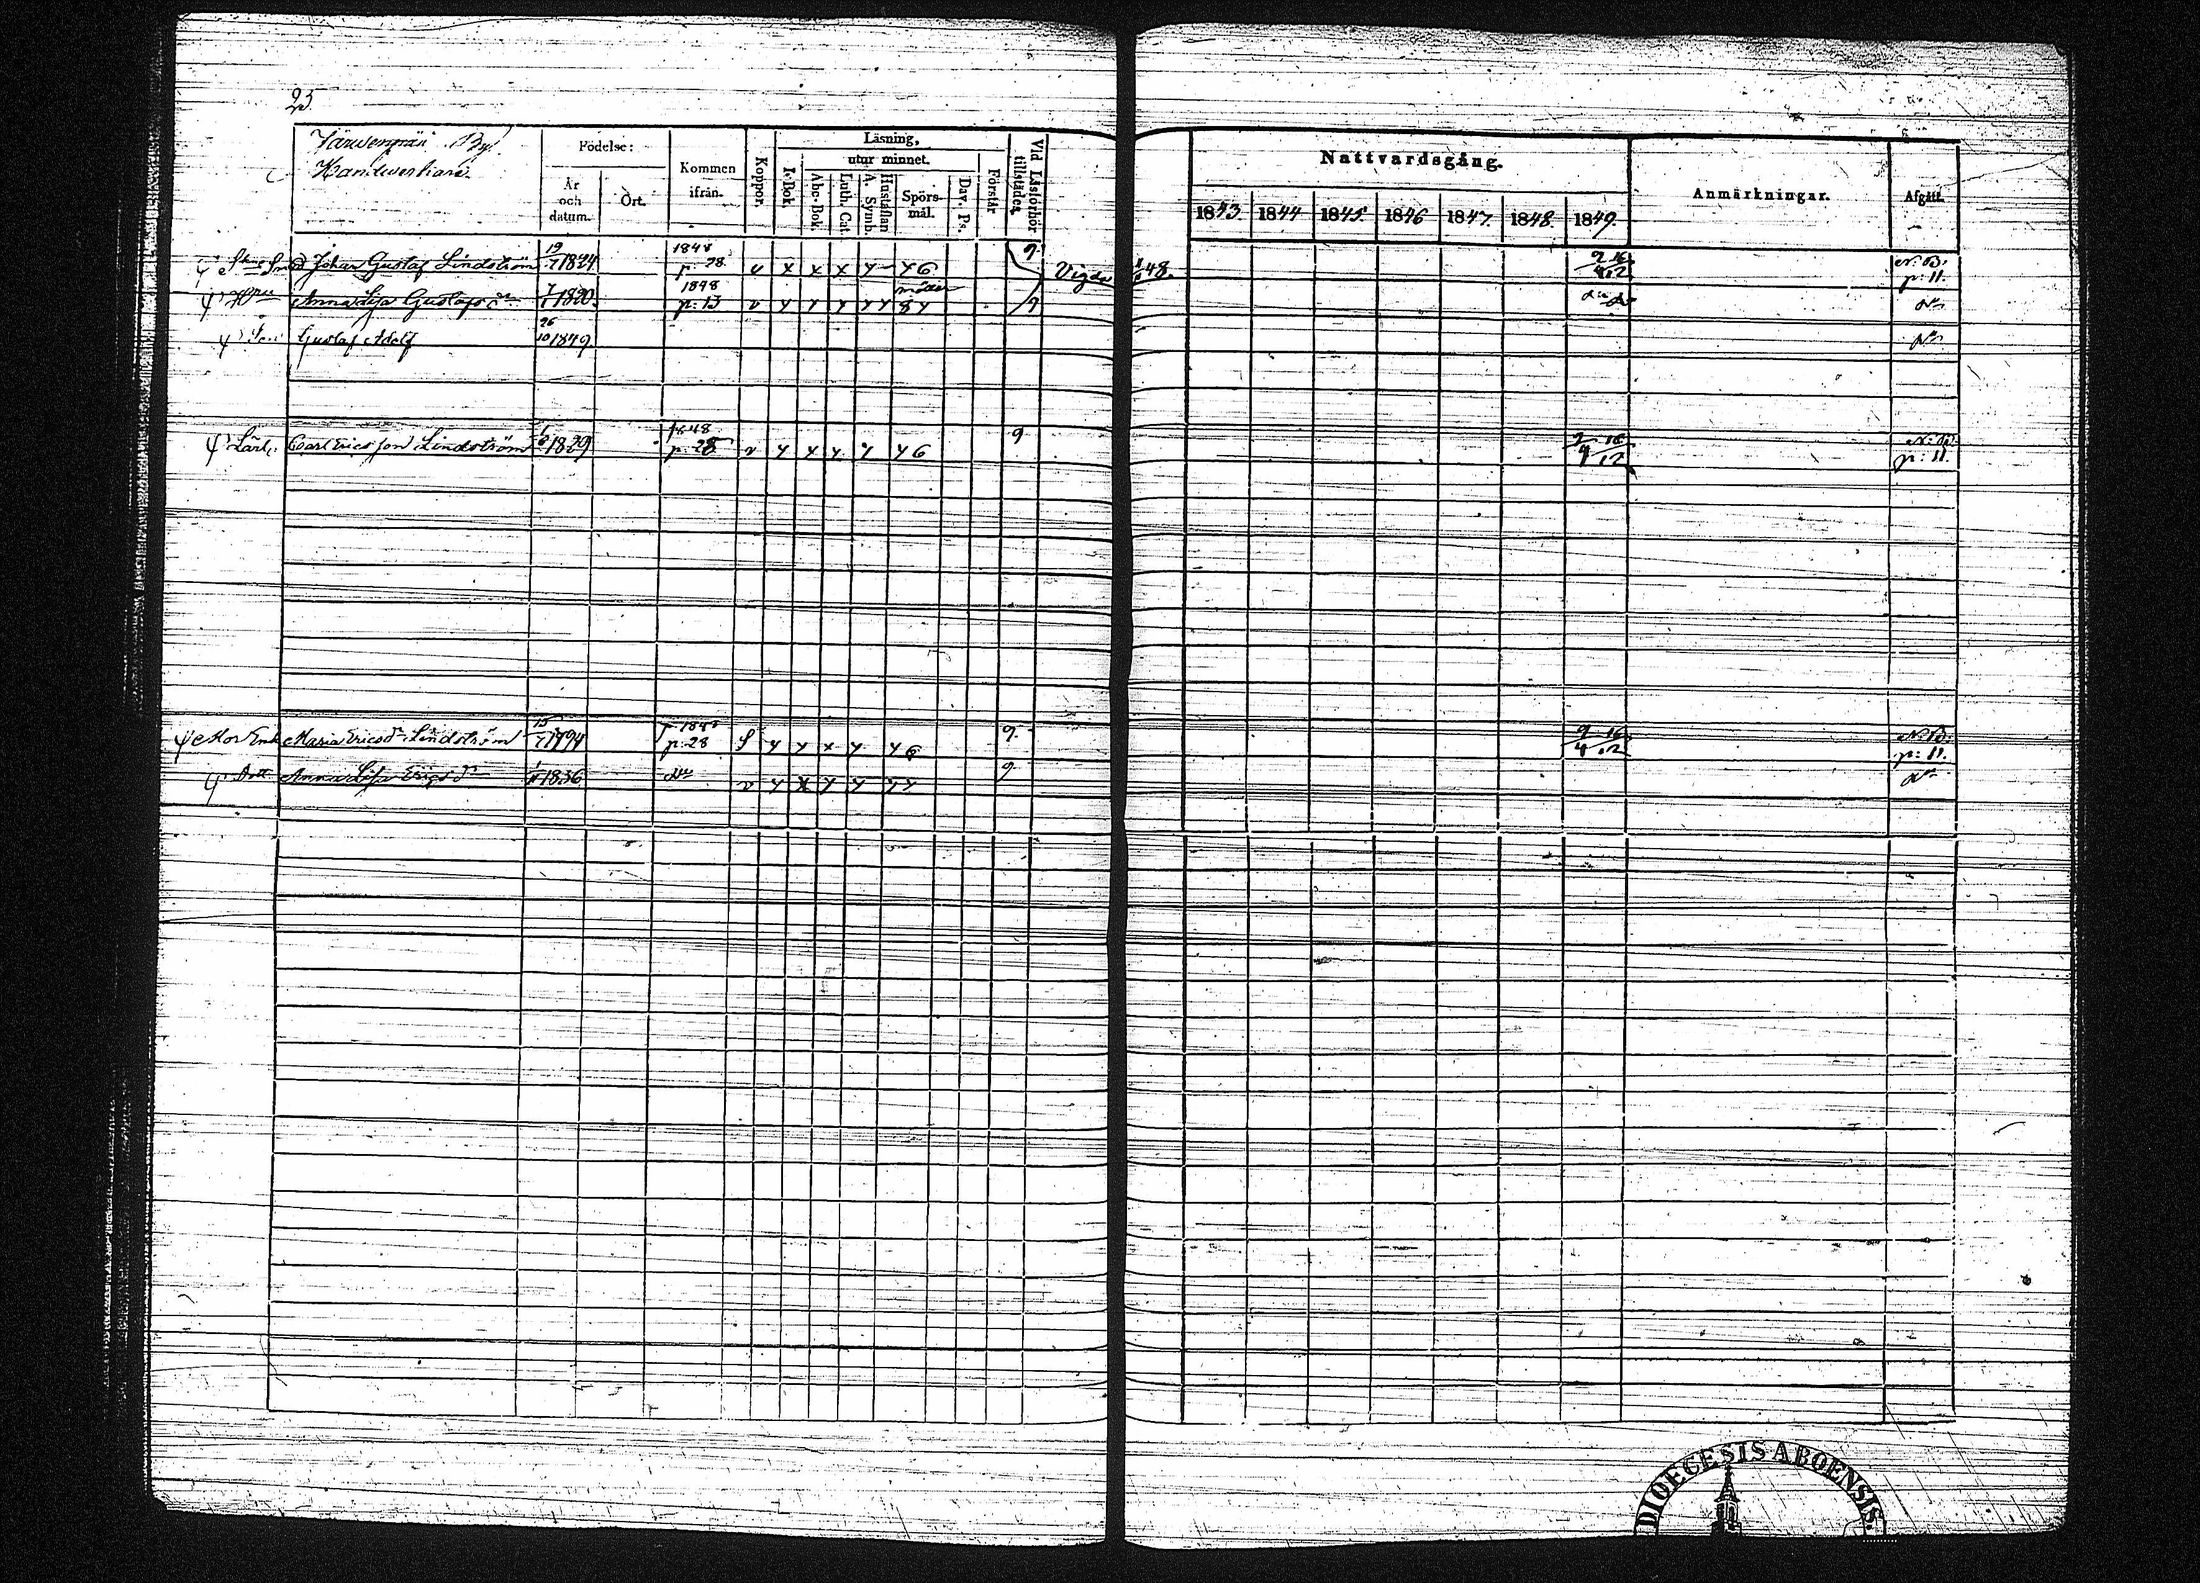 23
By
Handtverkare.
Födelse:
År och datum.
Ort.
Kommen ifrån.
Koppor.
Läsning,
I-Bok.
utur minnet.
Abc-Bok.
Luth. Cat.
Hustaflan A. Symb.
Spörs-mål.
Dav. Ps.
Förstår
Vid Läsförhör tillstädes.
Nattvardsgång.
1843. 1844 1845 1846 1847. 1848. 1849.
Anmärkningar.
Afgått.
Johan Gustaf Lindström 19/7 1824 1848 p. 28 v x x x 9 Vigde 48. 9/4 16/12 N. B. p: 11.
Anna Lisa Gustafs dr 7/1 1820. 1848 p: 13 v do
Gustaf Adolf 26/10 1849. do
Lärl. Carl Ericsson Lindström 1839 1848 p: 28 v 9 9/4 16/12 N: B: p: 11.
Mor Enk Maria Ericsdr Lindström 15/7 1794 p: 28 9 9/4 16/12 N: B: p: 11.
Dott. Anna Lisa Ericsdr 1836 do v 9 do
DIOECESIS ABOENSIS.